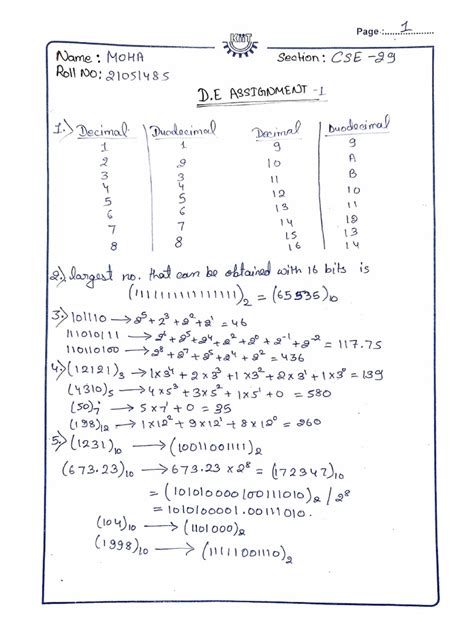 KIIT
Page : 1
Name : MOHA
Section : CSE -29
Roll NO: 21051485
D.E ASSIGNMENT -1
1.) Decimal Duodecimal Decimal Duodecimal
1 1 9 9
2 2 10 A
3 3 11 B
4 4 12 10
5 5 13 11
6 6 14 12
7 7 15 13
8 8 16 14
2.) largest no. that can be obtained with 16 bits is
(1111111111111111)₂ = (65535)₁₀
3.) 101110 → 2⁵ + 2³ + 2² + 2¹ = 46
= 117.75
= 436
4.) (12121)₃ → 1×3⁴ + 2×3³ + 1×3² + 2×3¹ + 1×3⁰ = 139
(4310)₅ → 4×5³ + 3×5² + 1×5¹ + 0 = 580
(50)₇ → 5×7¹ + 0 = 35
(198)₁₂ → 1×12² + 9×12¹ + 8×12⁰ = 260
5.) (1231)₁₀ → (10011001111)₂
(673.23)₁₀ → 673.23 × 2⁸ = (172347)₁₀
= (101010000100111010)₂ / 2⁸
= 1010100001.00111010.
(104)₁₀ → (1101000)₂
(1998)₁₀ → (11111001110)₂